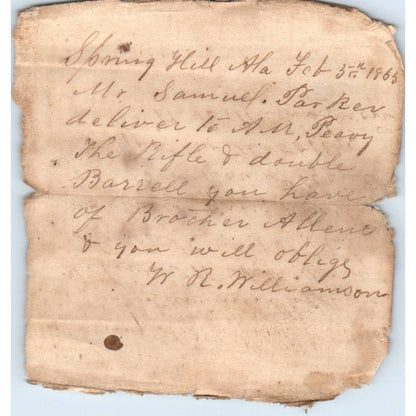 Spring Hill Ala Feb 5th 1865
Mr. Samuel. Parker
deliver to A M, Peavy
The Rifle & double
Barrell you have
of Brocher Allens
& you will oblige
W R. Williamson